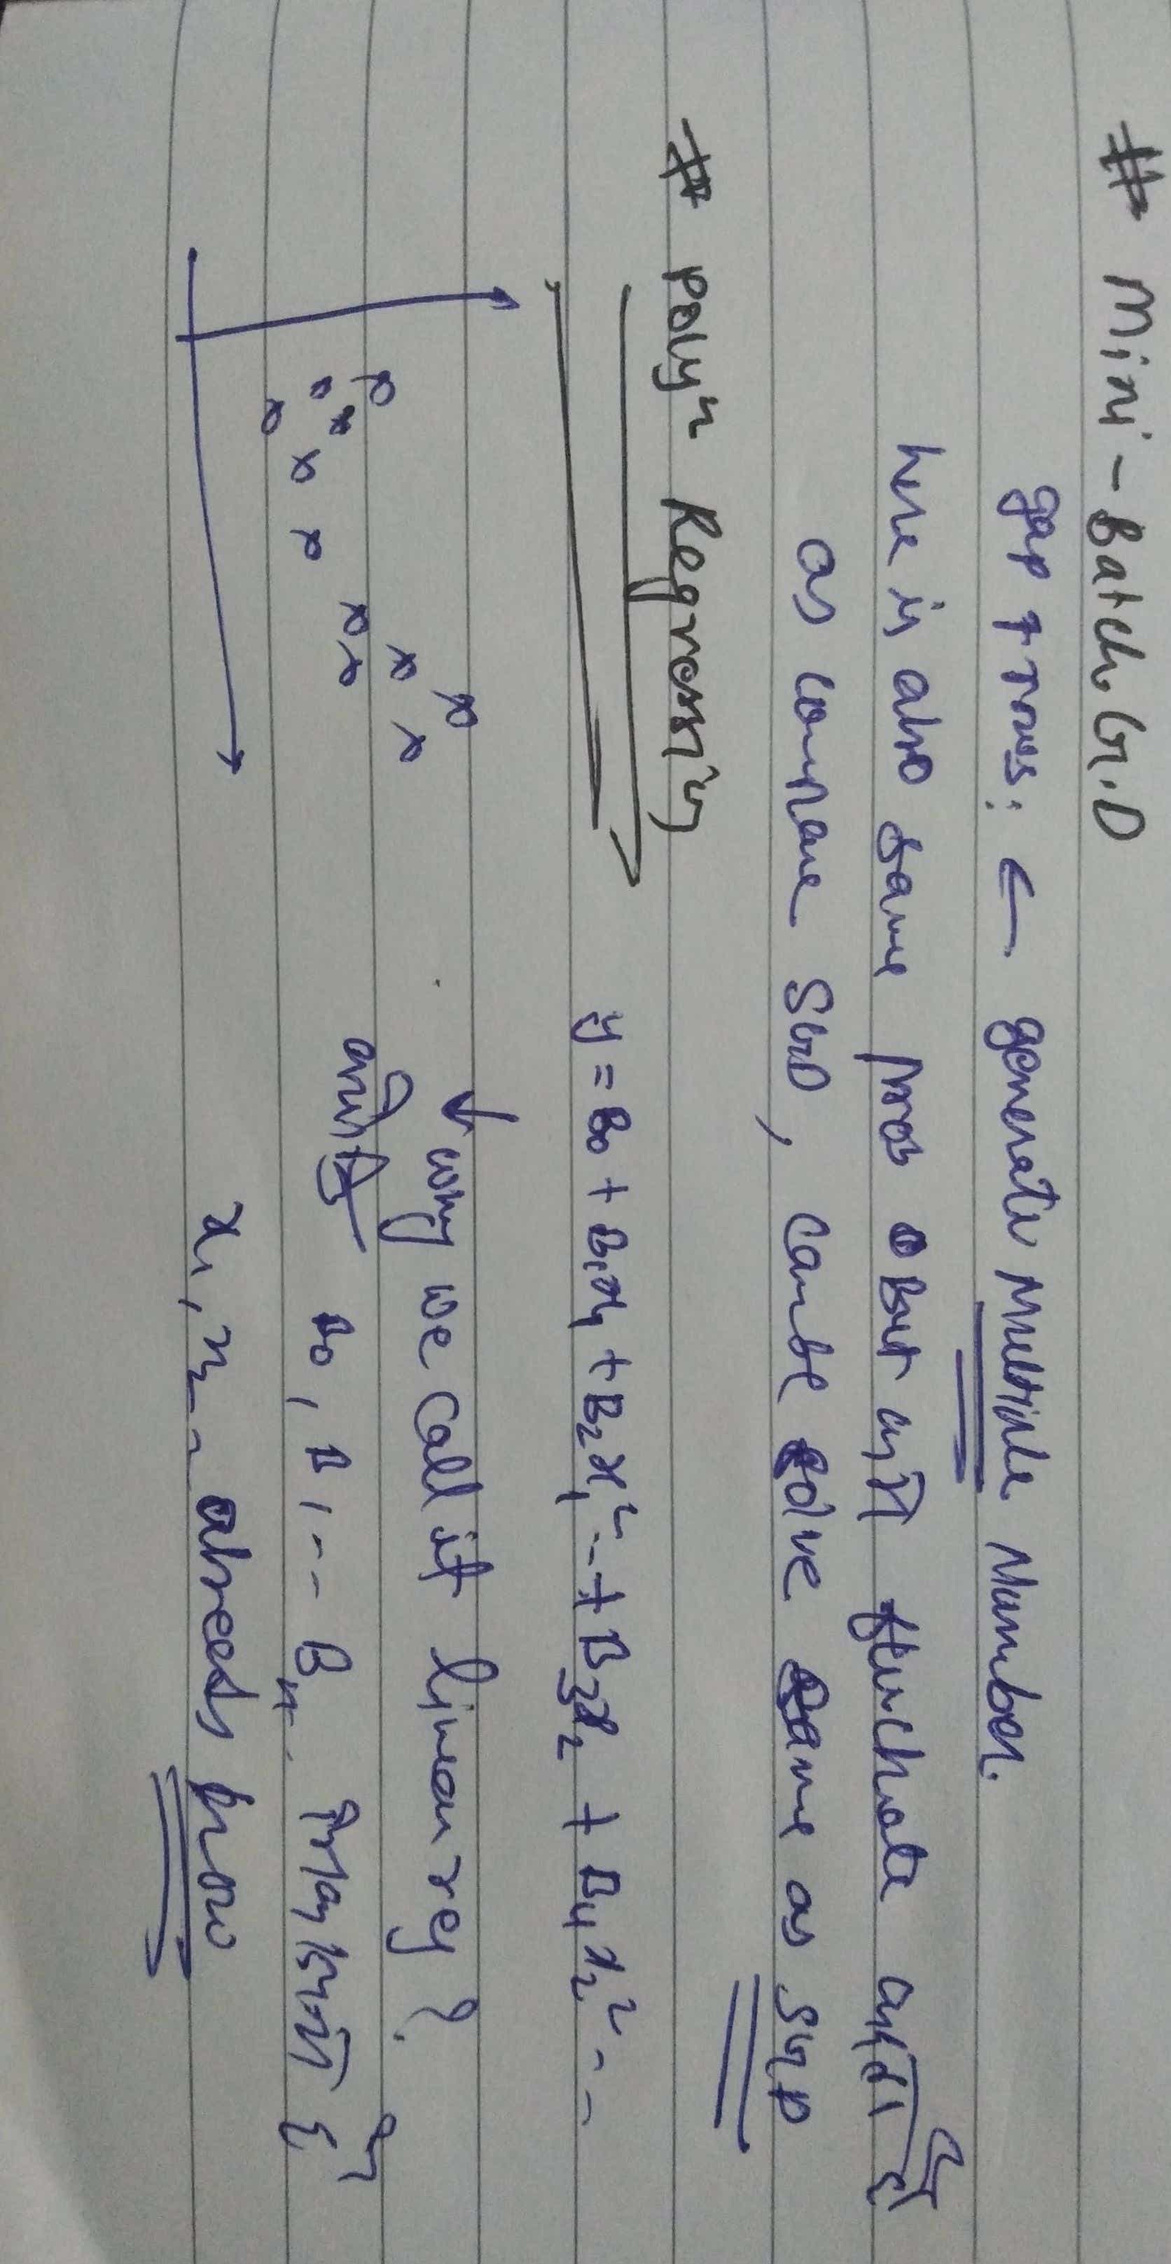 # Mini-Batch G.D
gap of rows: ← generate Multiple Number.
here is also same prob But कम fluchate करता है
as compare SGD, canbe solve same as SGD
# polyn Regression
y = B0 + B1x1 + B2x1² -- + B3x2 + B4x2² - -
↓ why we call it linear reg?
क्योंकि B0, B1 -- Bn. निकालने हैं
x1, x2 - already know